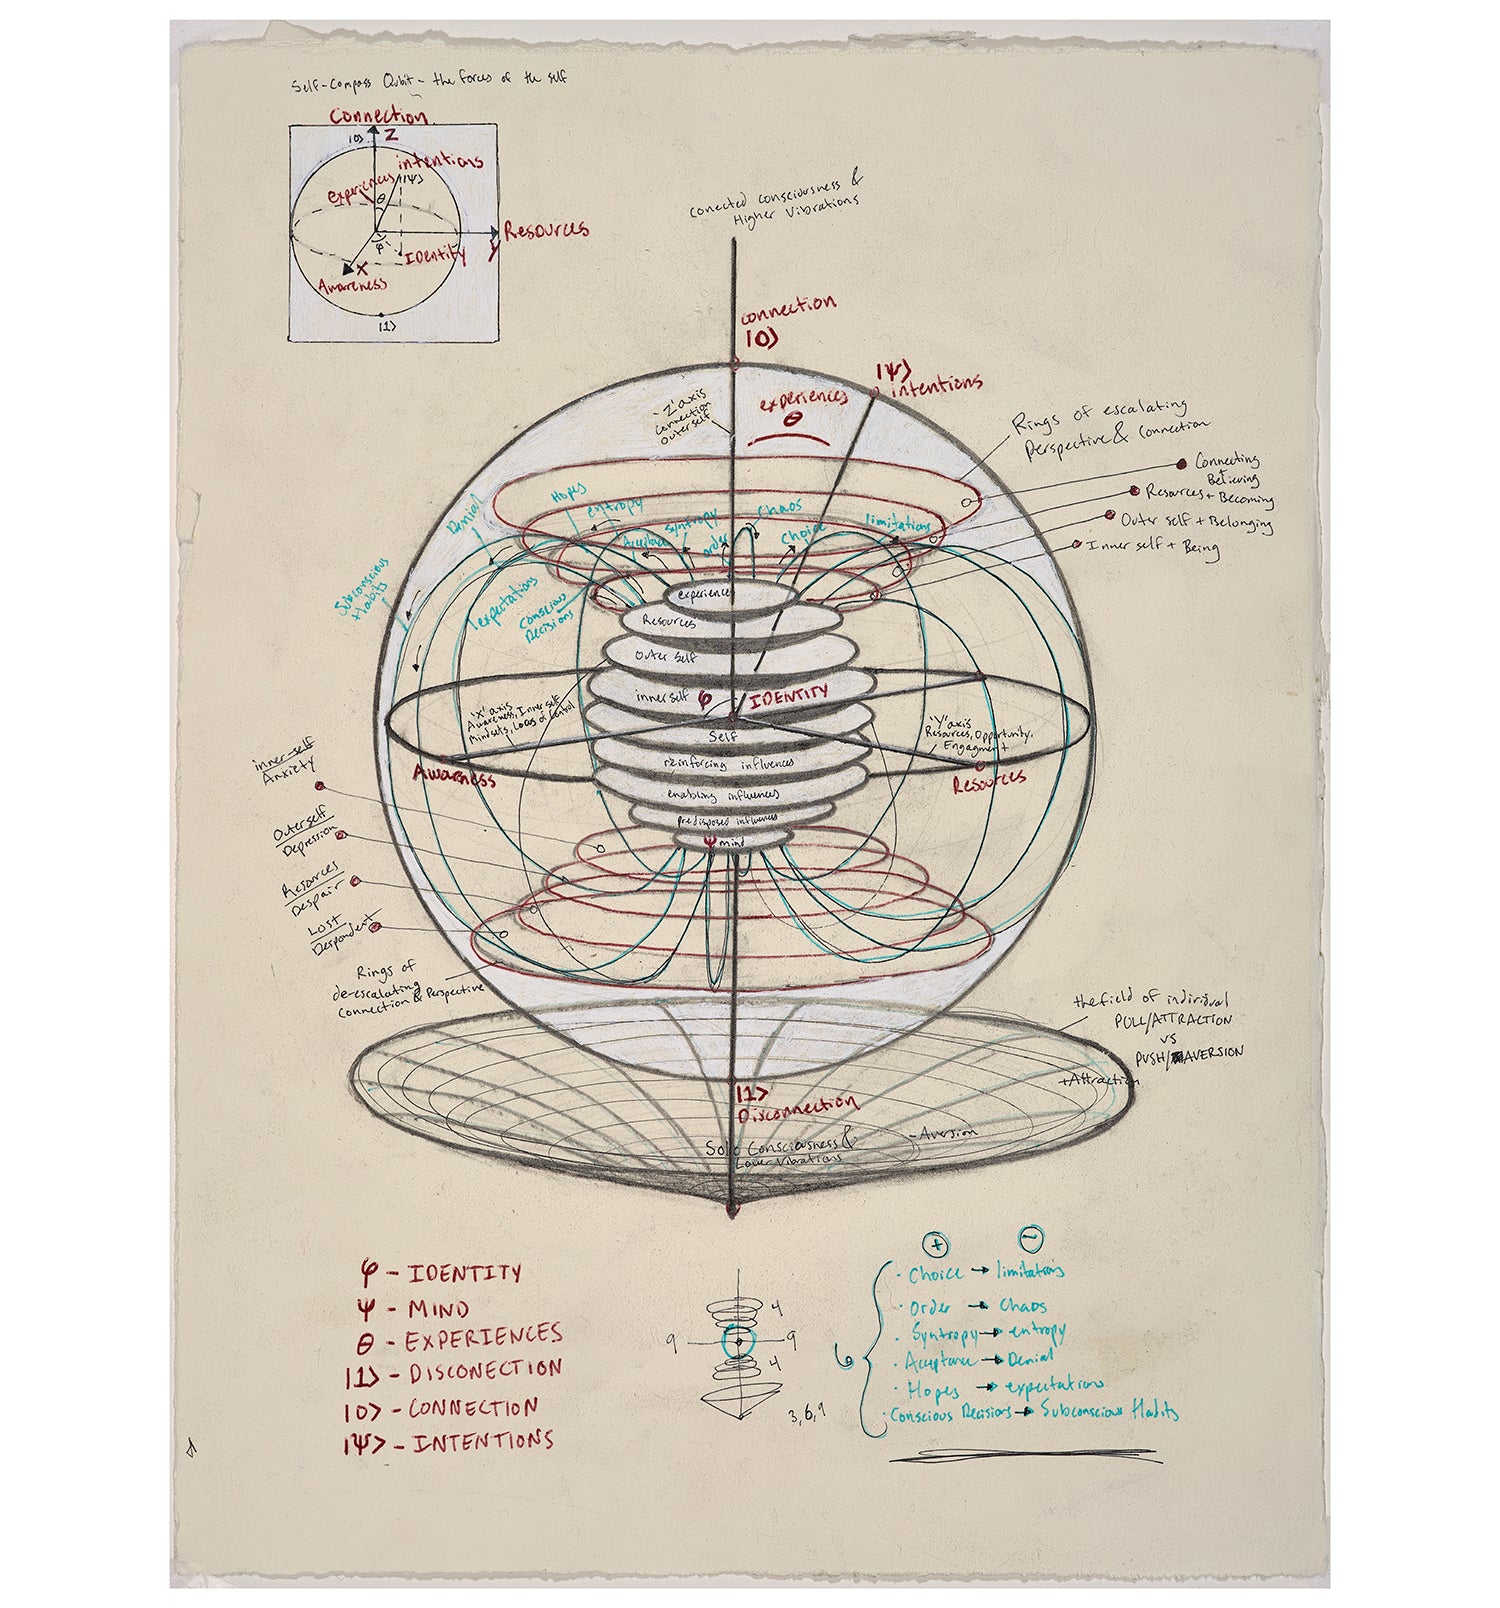 Self-Compass Qubit - the forces of the self
Connection
|0>
Z
intentions
|Ψ>
experiences
θ
Resources
y
φ
Identity
X
Awareness
|1>
conected consciousness &
Higher Vibrations
connection
|0>
|Ψ>
intentions
'Z' axis
Connection
Outerself
experiences
θ
Rings of escalating
Perspective & Connection
Connecting
+
Believing
Resources + Becoming
Outer self + Belonging
Inner self + Being
Denial
Hopes
entropy
Syntropy
order
Chaos
Choice
limitations
Subconscious
Habits
expectations
Conscious
Decisions
experiences
Resources
Outer Self
inner self
φ
IDENTITY
Self
reinforcing influences
enabling influences
predisposed influences
Ψ mind
'X' axis
Awareness, Inner self
Mindsets, Locus of Control
'Y' axis
Resources, Opportunity,
Engagment
Awarness
Resources
inner-self
Anxiety
Outerself
Depression
Resources
Despair
Lost
Despondent
Rings of
de-escalating
Connection & Perspective
the field of individual
PULL/ATTRACTION
VS
PUSH/AVERSION
+Attraction
|1>
Disconnection
-Aversion
Solo Consciousness &
Lower Vibrations
φ - IDENTITY
Ψ - MIND
θ - EXPERIENCES
|1> - DISCONECTION
|0> - CONNECTION
|Ψ> - INTENTIONS
4
9
9
4
3,6,9
+
-
6
· Choice → limitations
· Order → Chaos
· Syntropy → entropy
· Acceptance → Denial
· Hopes → expectations
· Conscious Decisions → Subconscious Habits